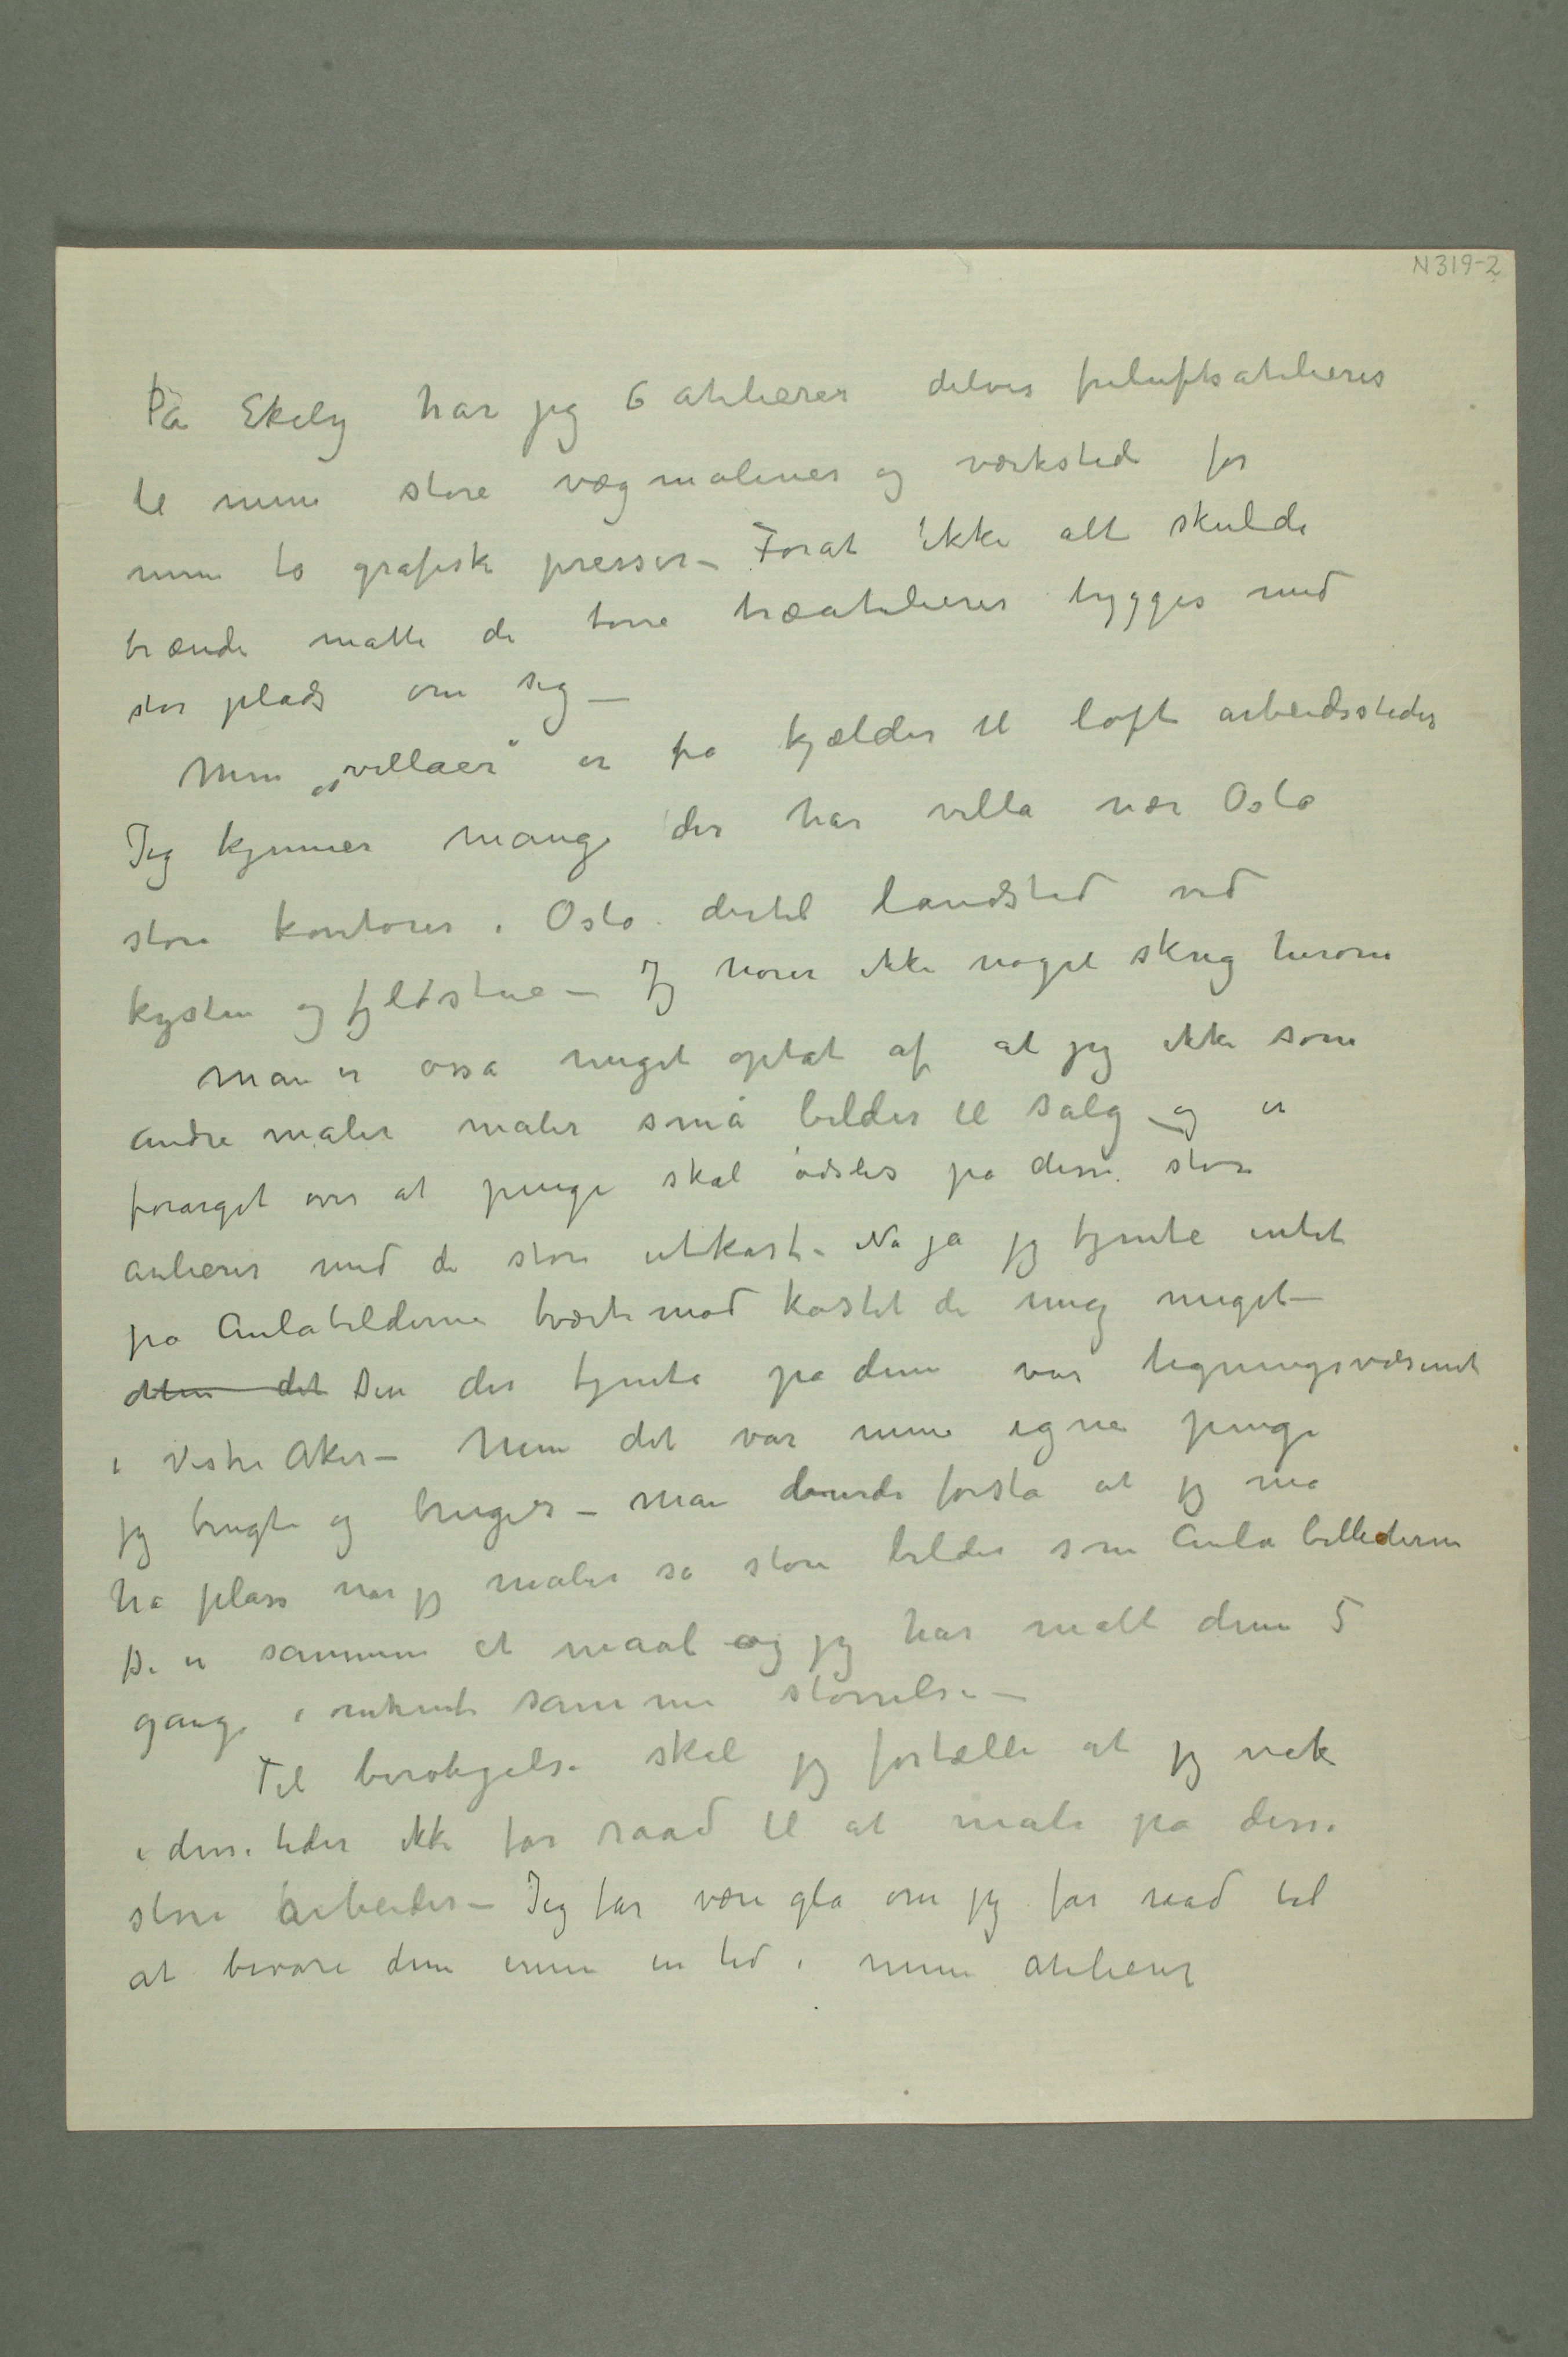 N 319-2
På Ekely har jeg 6 atelierer delvis friluftsatelieres
til mine store vægmaliner og værksted for
mine to grafiske presser – Forat ikke alt skulde
brænde måtte de tørre træatelierer bygges med
stor plads om sig –
Mine „villaer“ er fra kjælder til loft arbeidssteder
Jeg kjenner mange der har villa nær Oslo
store kontorer i Oslo dertil landsted ved
kysten og fjeldstue – Jg hører ikke noget skrig herom
Man er osså meget optat af at jeg ikke som
andre maler maler små bilder til salg – og er
forarget over at penge skal ødsles på disse store
atelierer med de store utkast – Nå ja jg tjente intet
på Aulabilderne tvært imod kostet de mig meget –
Den der tjente på dem var ligningsvæsenet
i Vestre Aker – Men det var mine egne penge
jg brugte og bruger – Man burde forstå at jg må
ha plass når jg maler så store bilder som Aula billederne
De er sammen et maal og jg har malt dem 5
gange i omtrent samme størrelse –
Til beroligelse skal jg fortælle at jg nok
i disse tider ikke får raad til at male på disse
store arbeider – Jeg får være gla om jg får raad til
at bevare dem ennu en tid i mine atelierer